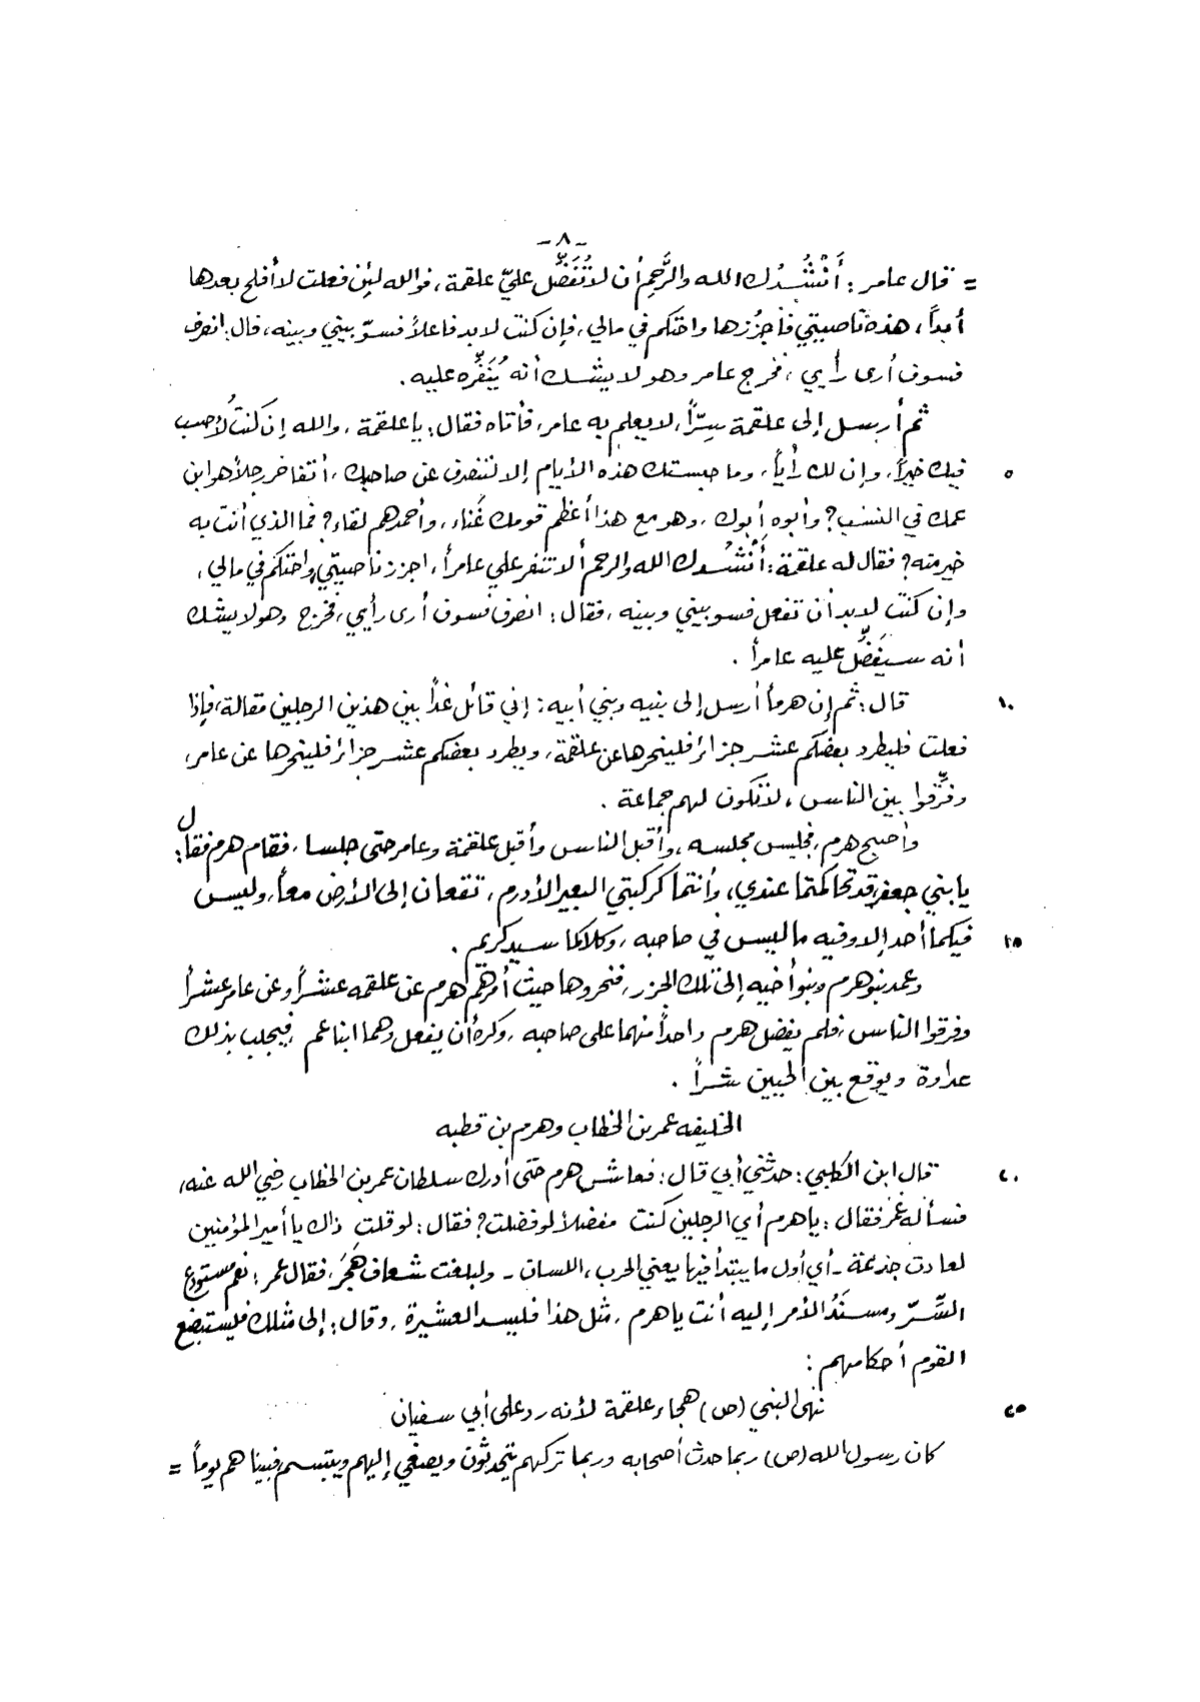 -٨-
= قال عامر : أَنْشُدُك الله والرَّحِم أن لا تُفَضِّل عليّ علقمة ، فوالله لئن فعلت لا أفلح بعدها
أبداً ، هذه ناصيتي فأجُزْزها واحتكم في مالي ، فإن كنت لابد فاعلاً فسوّ بيني وبينه ، قال : انصرف
فسوف أرى رأيي ، فخرج عامر وهو لا يشك أنه يُنَفِّره عليه .
ثم أرسل إلى علقمة سِرّاً ، لا يعلم به عامر ، فأتاه فقال : يا علقمة ، والله إن كنتُ لأحسب
٥ فيك خيراً ، وإن لك رأياً ، وما حبستك هذه الأيام إلا لتنصرف عن صاحبك ، أتفاخر رجلاً هو ابن
عمك في النسب ؟ وأبوه أبوك ، وهو مع هذا أعظم قومك غَناء ، وأحمدهم لقاء ؟ فما الذي أنت به
خير منه ؟ فقال له علقمة : أَنْشُدك الله والرحم ألا تنفر علي عامراً ، اجزز ناصيتي واحتكم في مالي ،
وإن كنت لابد أن تفعل فسو بيني وبينه ، فقال : انصرف فسوف أرى رأيي ، فخرج وهو لا يشك
أنه سيَفَضِّل عليه عامراً .
١٠ قال : ثم إن هرماً أرسل إلى بنيه وبني أبيه : إني قائل غداً بين هذين الرجلين مقالة ، فإذا
فعلت فليطرد بعضكم عشر جزائر فلينحرها عن علقمة ، ويطرد بعضكم عشر جزائر فلينحرها عن عامر ،
وفرِّقوا بين الناس ، لا تكون لهم جماعة .
وأصبح هرم ، فجلس مجلسه ، وأقبل الناس وأقبل علقمة وعامر حتى جلسا ، فقام هرم فقال :
يا بني جعفر قد تحاكمتما عندي ، وأنتما كركبتي البعير الأدرم ، تقعان إلى الأرض معاً ، وليس
١٥ فيكما أحد إلا وفيه ما ليس في صاحبه ، وكلاكما سيد كريم .
وعمد بنو هرم وبنو أخيه إلى تلك الجزر ، فنحروها حيث أمرهم هرم عن علقمه عشراً وعن عامر عشراً
وفرقوا الناس ، فلم يفضل هرم واحداً منهما على صاحبه ، وكره أن يفعل وهما ابنا عم ، فيجلب بذلك
عداوة ويوقع بين الحيين شراً .
الخليفه عمر بن الخطاب وهرم بن قطبه
٢٠ قال ابن الكلبي : حدثني أبي قال : فعاش هرم حتى أدرك سلطان عمر بن الخطاب رضي الله عنه ،
فسأله عمر فقال : يا هرم أي الرجلين كنت مفضلاً لو فضلت ؟ فقال : لو قلت ذاك يا أمير المؤمنين
لعادت جذعة - أي أول ما يبتدأ فيها يعني الحرب ، اللسان - ولبلغت شعاف هَجَرَ ، فقال عمر : نعم مستودع
السِّرّ ومسنَدُ الأمر إليه أنت يا هرم ، مثل هذا فليسد العشيرة ، وقال : إلى مثلك فليستبضع
القوم أحكامهم :
٢٥ نهى النبي (ص) هجاء علقمة لأنه رد على أبي سفيان
كان رسول الله (ص) ربما حدث أصحابه وربما تركهم يتحدثون ويصغي إليهم ويتبسم ، فبينا هم يوماً =